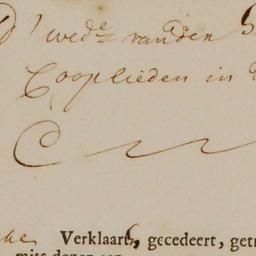 D' wed.e van den
Cooplieden in
C
Verklaart, gecedeert, get
mits dezen aan